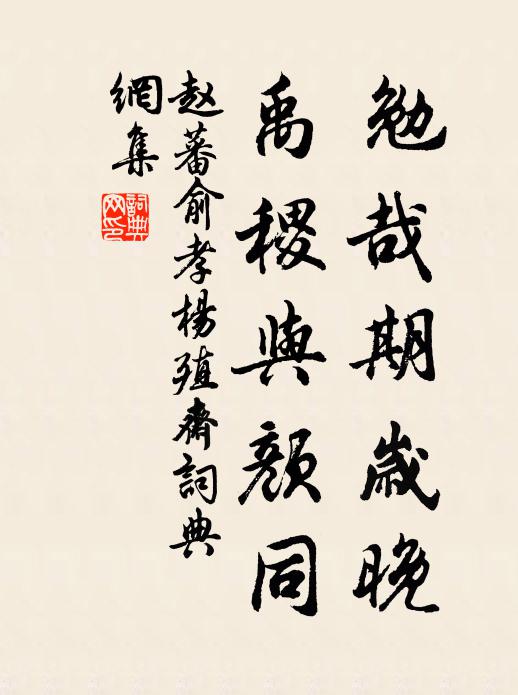 勉哉期歲晚
禹稷與顏同
赵蕃俞孝楊殖齋詞典
網集
詞典
网印